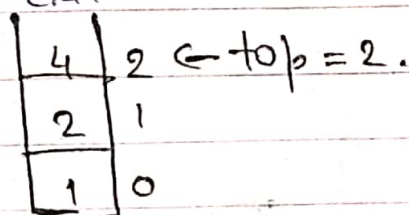 4 2 ← top = 2.
2 1
1 0